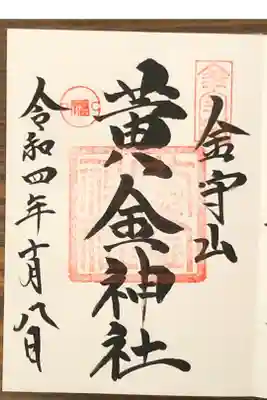 金守山
黄金神社
令和四年十月八日